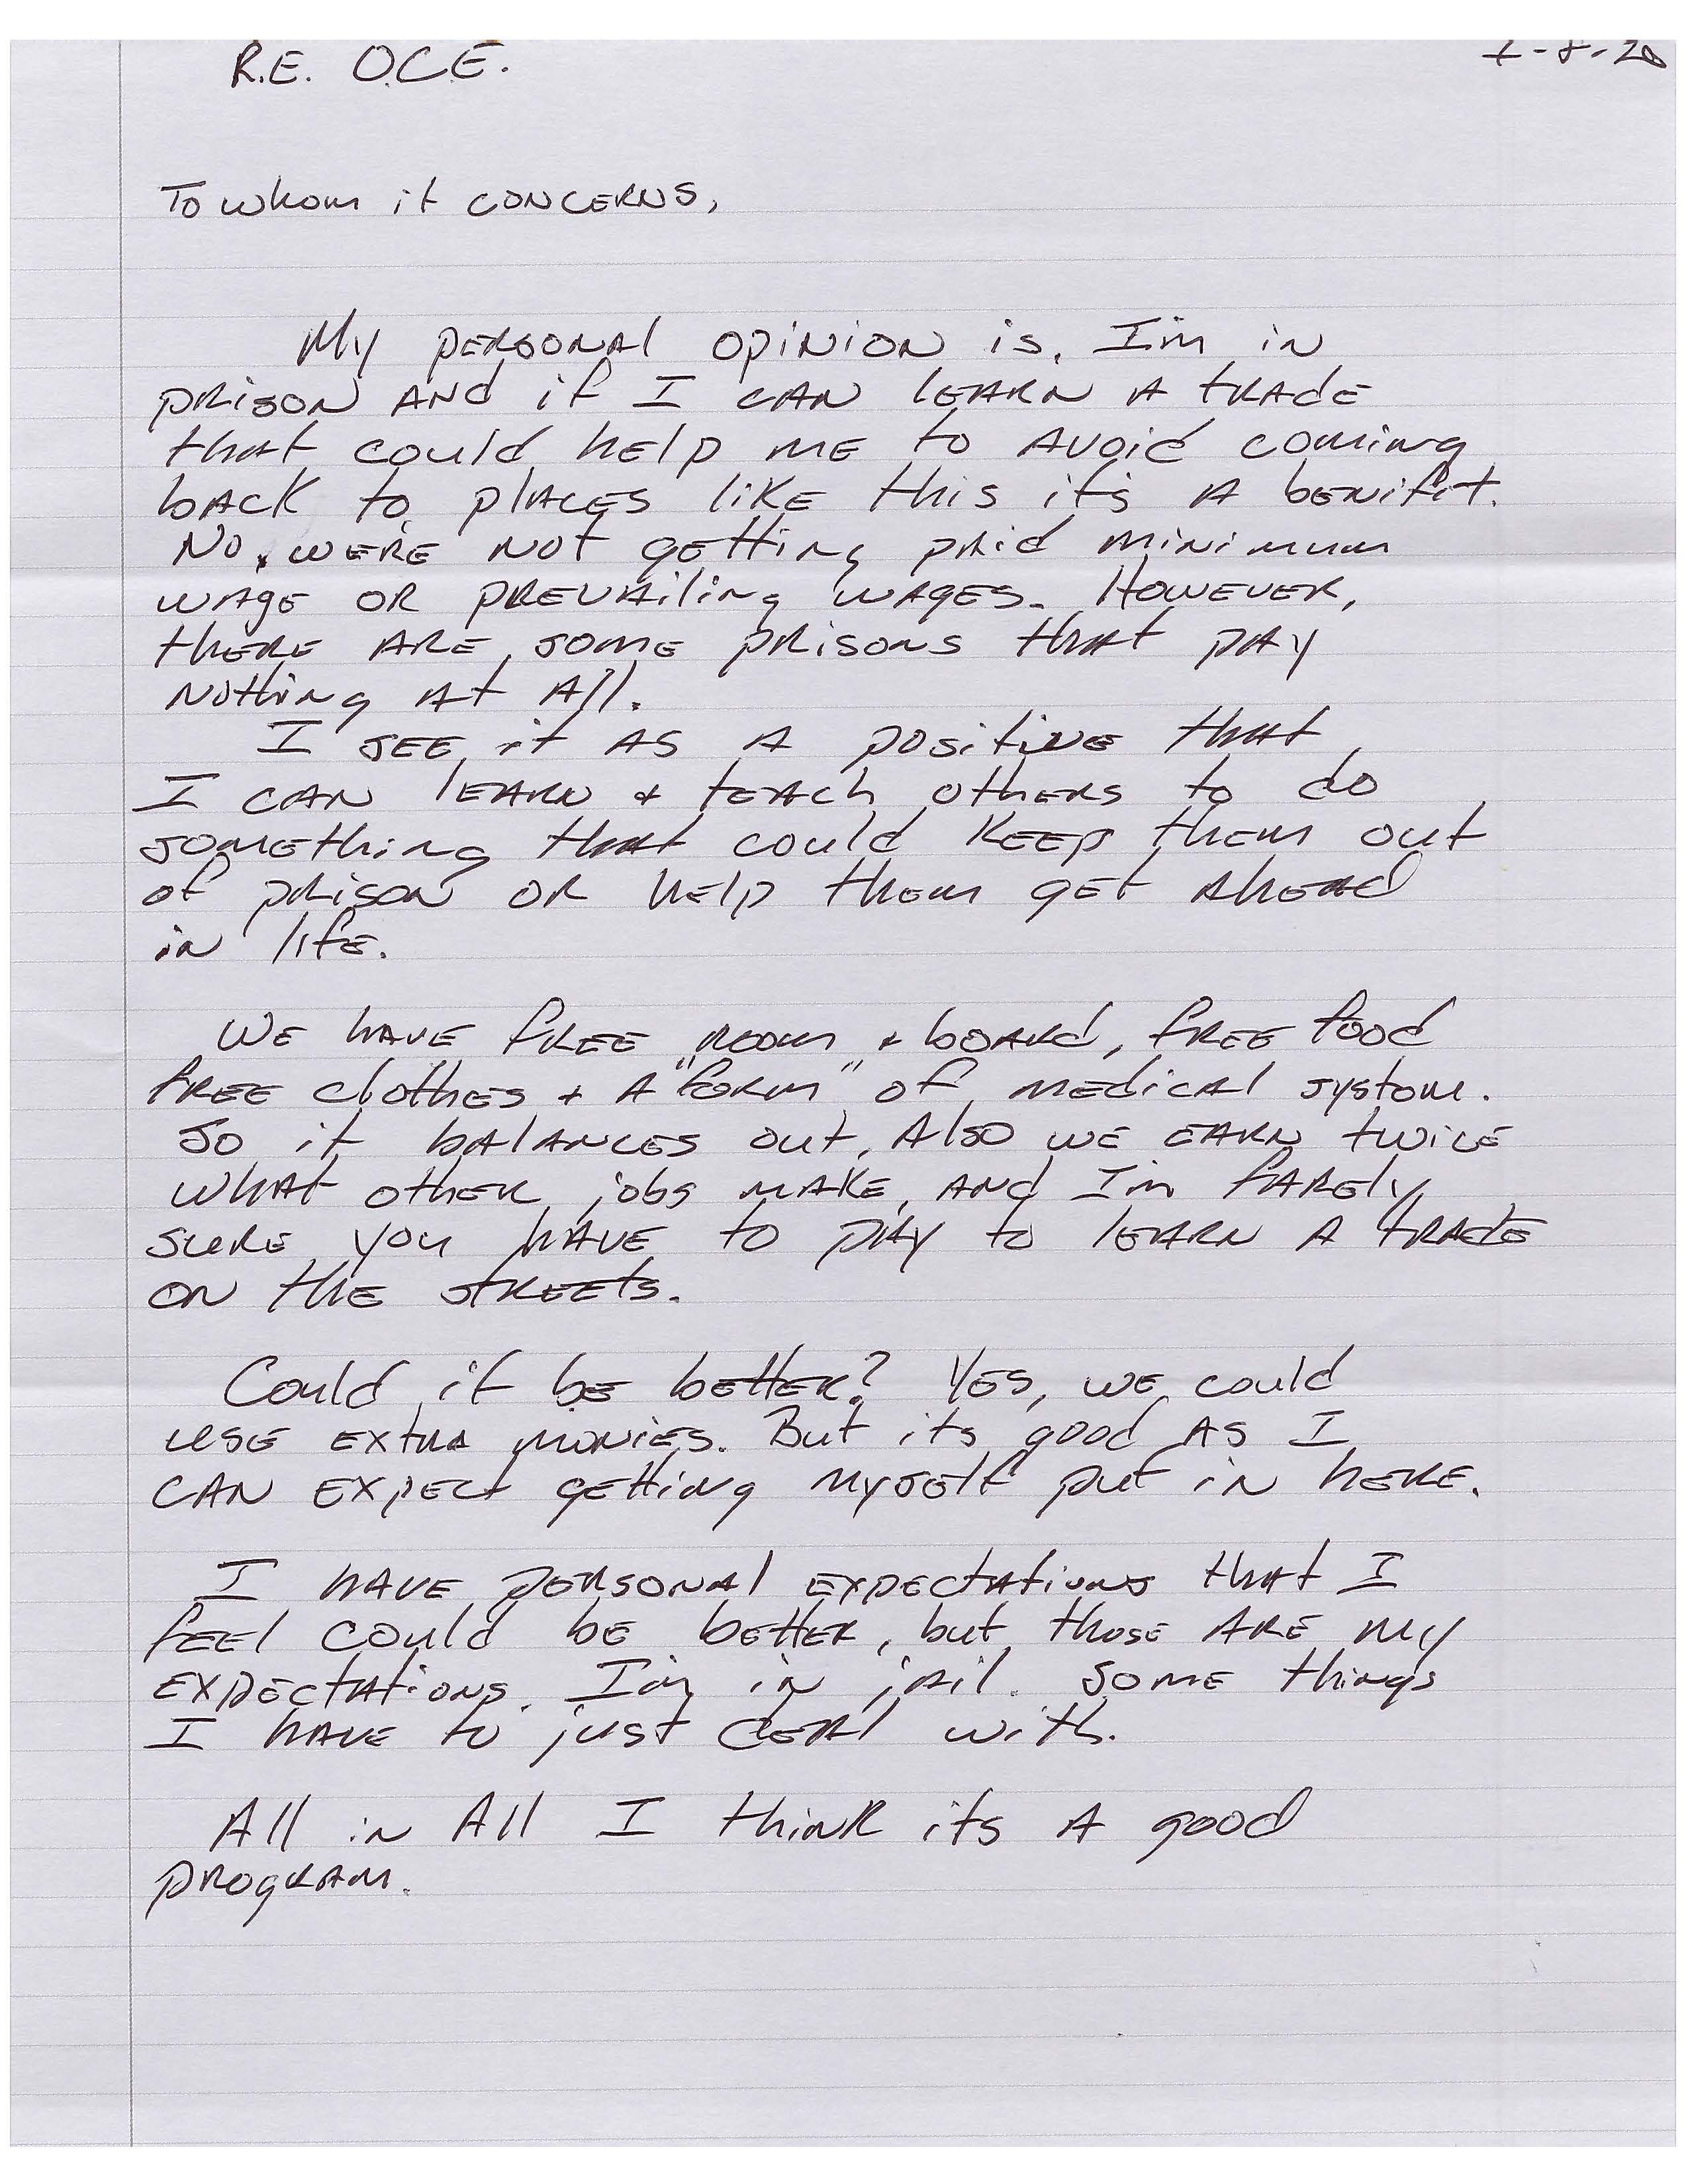 R.E. O.C.E.
To whom it concerns,
My personal opinion is, I'm in
prison and if I can learn a trade
that could help me to avoid coming
back to places like this it's a benifit.
No, we're not getting paid minimum
wage or prevailing wages. However,
there are some prisons that pay
nothing at all.
I see it as a positive that
I can learn & teach others to do
something that could keep them out
of prison or help them get ahead
in life.
We have free room & board, free food
free clothes & a "form" of medical system.
So it balances out. Also we earn twice
what other jobs make, and I'm farely
sure you have to pay to learn a trade
on the streets.
Could it be better? Yes, we could
use extra monies. But its good as I
can expect getting myself put in here.
I have personal expectations that I
feel could be better, but those are my
expectations. I'm in jail. Some things
I have to just deal with.
All in all I think its a good
program.